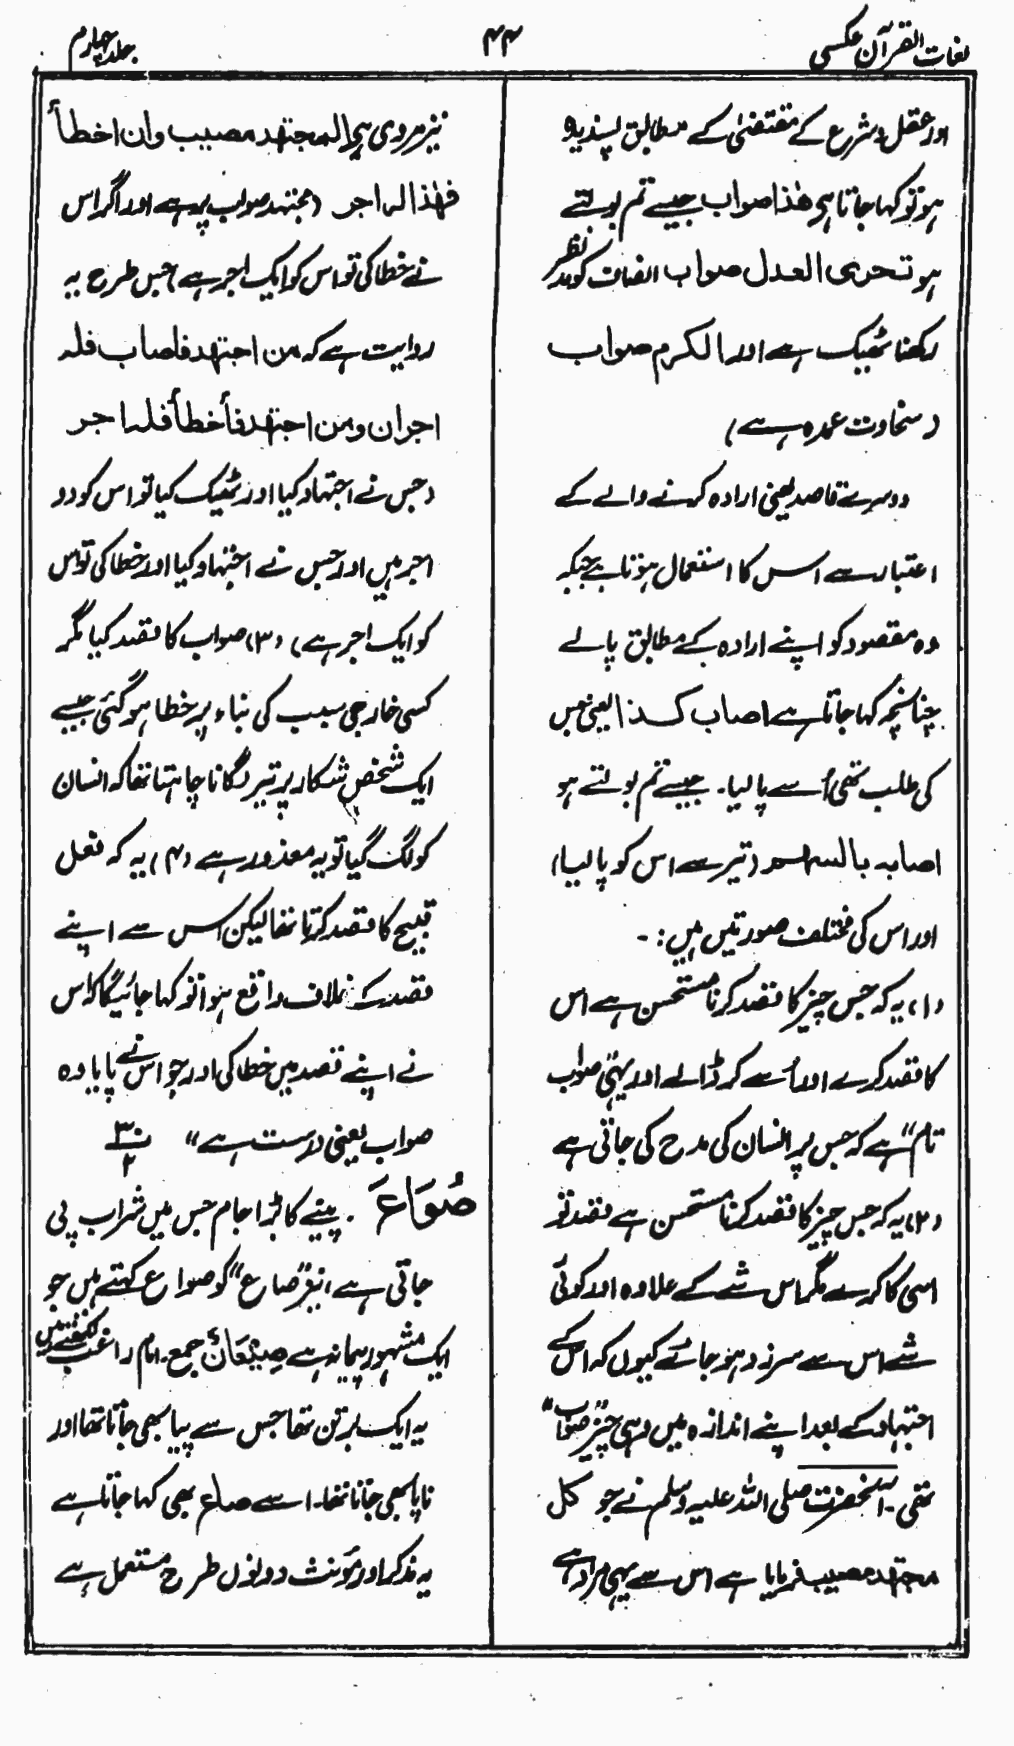 لغات القرآن عکسی
۴۴
جلد چہارم
اور عقل و شرع کے مقتضیٰ کے مطابق پسندیدہ
ہو تو کہا جاتا ہے ھٰذا صواب جیسے تم بولتے
ہو تحری العدل صواب انصاف کو مد نظر
رکھنا ٹھیک ہے اور الکرم صواب
(سخاوت عمدہ ہے)
دوسرے قاصد یعنی ارادہ کرنے والے کے
اعتبار سے اس کا استعمال ہوتا ہے جبکہ
وہ مقصود کو اپنے ارادہ کے مطابق پالے
چنانچہ کہا جاتا ہے اصاب کذا یعنی جس
کی طلب تھی اُسے پا لیا۔ جیسے تم بولتے ہو
اصابه بالسهم (تیر سے اس کو پا لیا)
اور اس کی مختلف صورتیں ہیں :-
(۱) یہ کہ جس چیز کا قصد کرنا مستحسن ہے اس
کا قصد کرے اور اُسے کر ڈالے اور یہی "صواب
تام" ہے کہ جس پر انسان کی مدح کی جاتی ہے
(۲) یہ کہ جس چیز کا قصد کرنا مستحسن ہے قصد تو
اسی کا کرے مگر اس شے کے علاوہ اور کوئی
شے اس سے سرزد ہو جائے کیوں کہ اس کے
اجتہاد کے بعد اپنے اندازہ میں وہی چیز "صواب"
تھی۔ آنحضرت صلی اللہ علیہ وسلم نے جو کل
مجتهد مصیب فرمایا ہے اس سے یہی مراد ہے
نیز مروی ہے المجتهد مصیب وان اخطأ
فھٰذا له اجر (مجتہد صواب پر ہے اور اگر اس
نے خطا کی تو اس کو ایک اجر ہے) جس طرح یہ
روایت ہے کہ من اجتهد فاصاب فله
اجران ومن اجتهد فأخطأ فله اجر
(جس نے اجتہاد کیا اور ٹھیک کیا تو اس کو دو
اجر ہیں اور جس نے اجتہاد کیا اور خطا کی تو اس
کو ایک اجر ہے) (۳) صواب کا قصد کیا مگر
کسی خارجی سبب کی بناء پر خطا ہو گئی جیسے
ایک شخص شکار پر تیر لگانا چاہتا تھا کہ انسان
کو لگ گیا تو یہ معذور ہے (۴) یہ کہ فعل
قبیح کا قصد کرتا تھا لیکن اس سے اپنے
قصد کے خلاف واقع ہوا تو کہا جائیگا کہ اس
نے اپنے قصد میں خطا کی اور جو اس نے پایا وہ
صواب یعنی درست ہے"
صُوَاعَ . پینے کا بڑا جام جس میں شراب پی
جاتی ہے، نیز "صاع" کو صواع کہتے ہیں جو
ایک مشہور پیمانہ ہے صِيْعَانٌ جمع۔ امام راغب لکھتے ہیں
یہ ایک برتن تھا جس سے پیا بھی جاتا تھا اور
ناپا بھی جاتا تھا۔ اسے صاع بھی کہا جاتا ہے
یہ مذکر اور مؤنث دونوں طرح مستعمل ہے